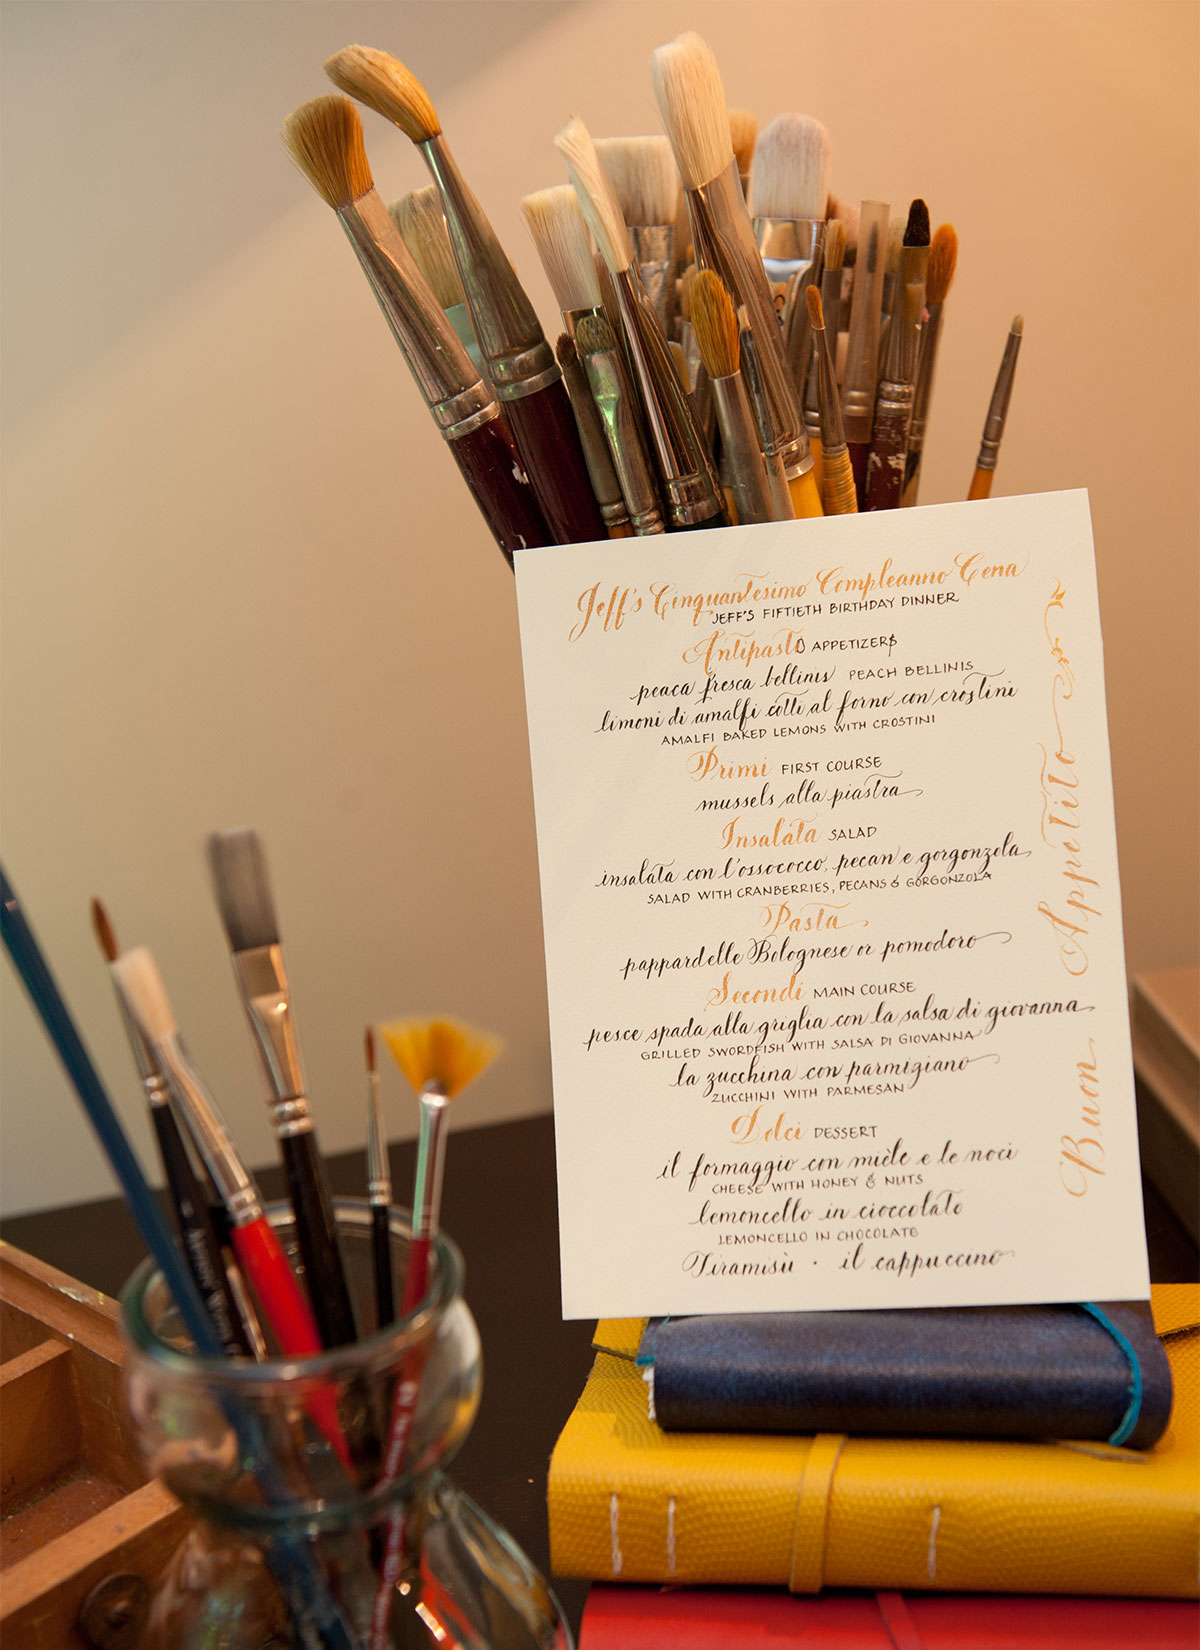 Jeff's Cinquantesimo Compleanno Cena
JEFF'S FIFTIETH BIRTHDAY DINNER
Antipasto APPETIZERS
peaca fresca bellinis PEACH BELLINIS
limoni di amalfi cotti al forno con crostini
AMALFI BAKED LEMONS WITH CROSTINI
Primi FIRST COURSE
mussels alla piastra
Insalata SALAD
insalata con l'ossococco, pecan e gorgonzola
SALAD WITH CRANBERRIES, PECANS & GORGONZOLA
Pasta
pappardelle Bolognese or pomodoro
Secondi MAIN COURSE
pesce spada alla griglia con la salsa di giovanna
GRILLED SWORDFISH WITH SALSA DI GIOVANNA
la zucchina con parmigiano
ZUCCHINI WITH PARMESAN
Dolci DESSERT
il formaggio con mièle e le noci
CHEESE WITH HONEY & NUTS
lemoncello in cioccolato
LEMONCELLO IN CHOCOLATE
Tiramisù · il cappuccino
Buon Appetito